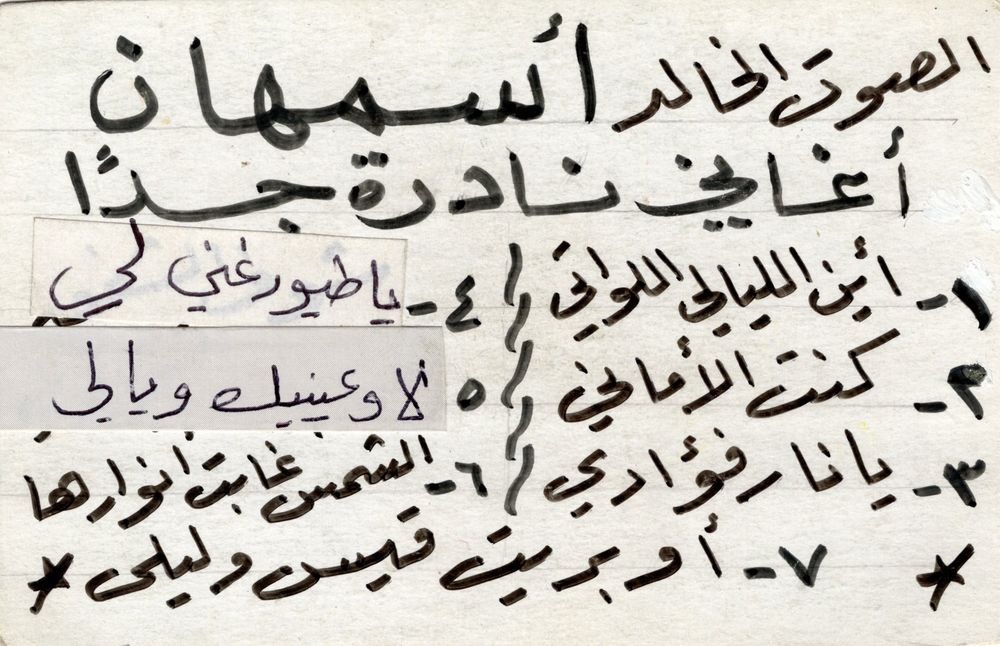 الصوت الخالد أسمهان
أغاني نادرة جدًا
١- اين الليالي اللواتي
٢- كنت الأماني
٣- يا نار فؤادي
٤- يا طيور غني لي
٥ لا وعينيك ويالي
٦- الشمس غابت انوارها
* ٧- أوبريت قيس وليلى *